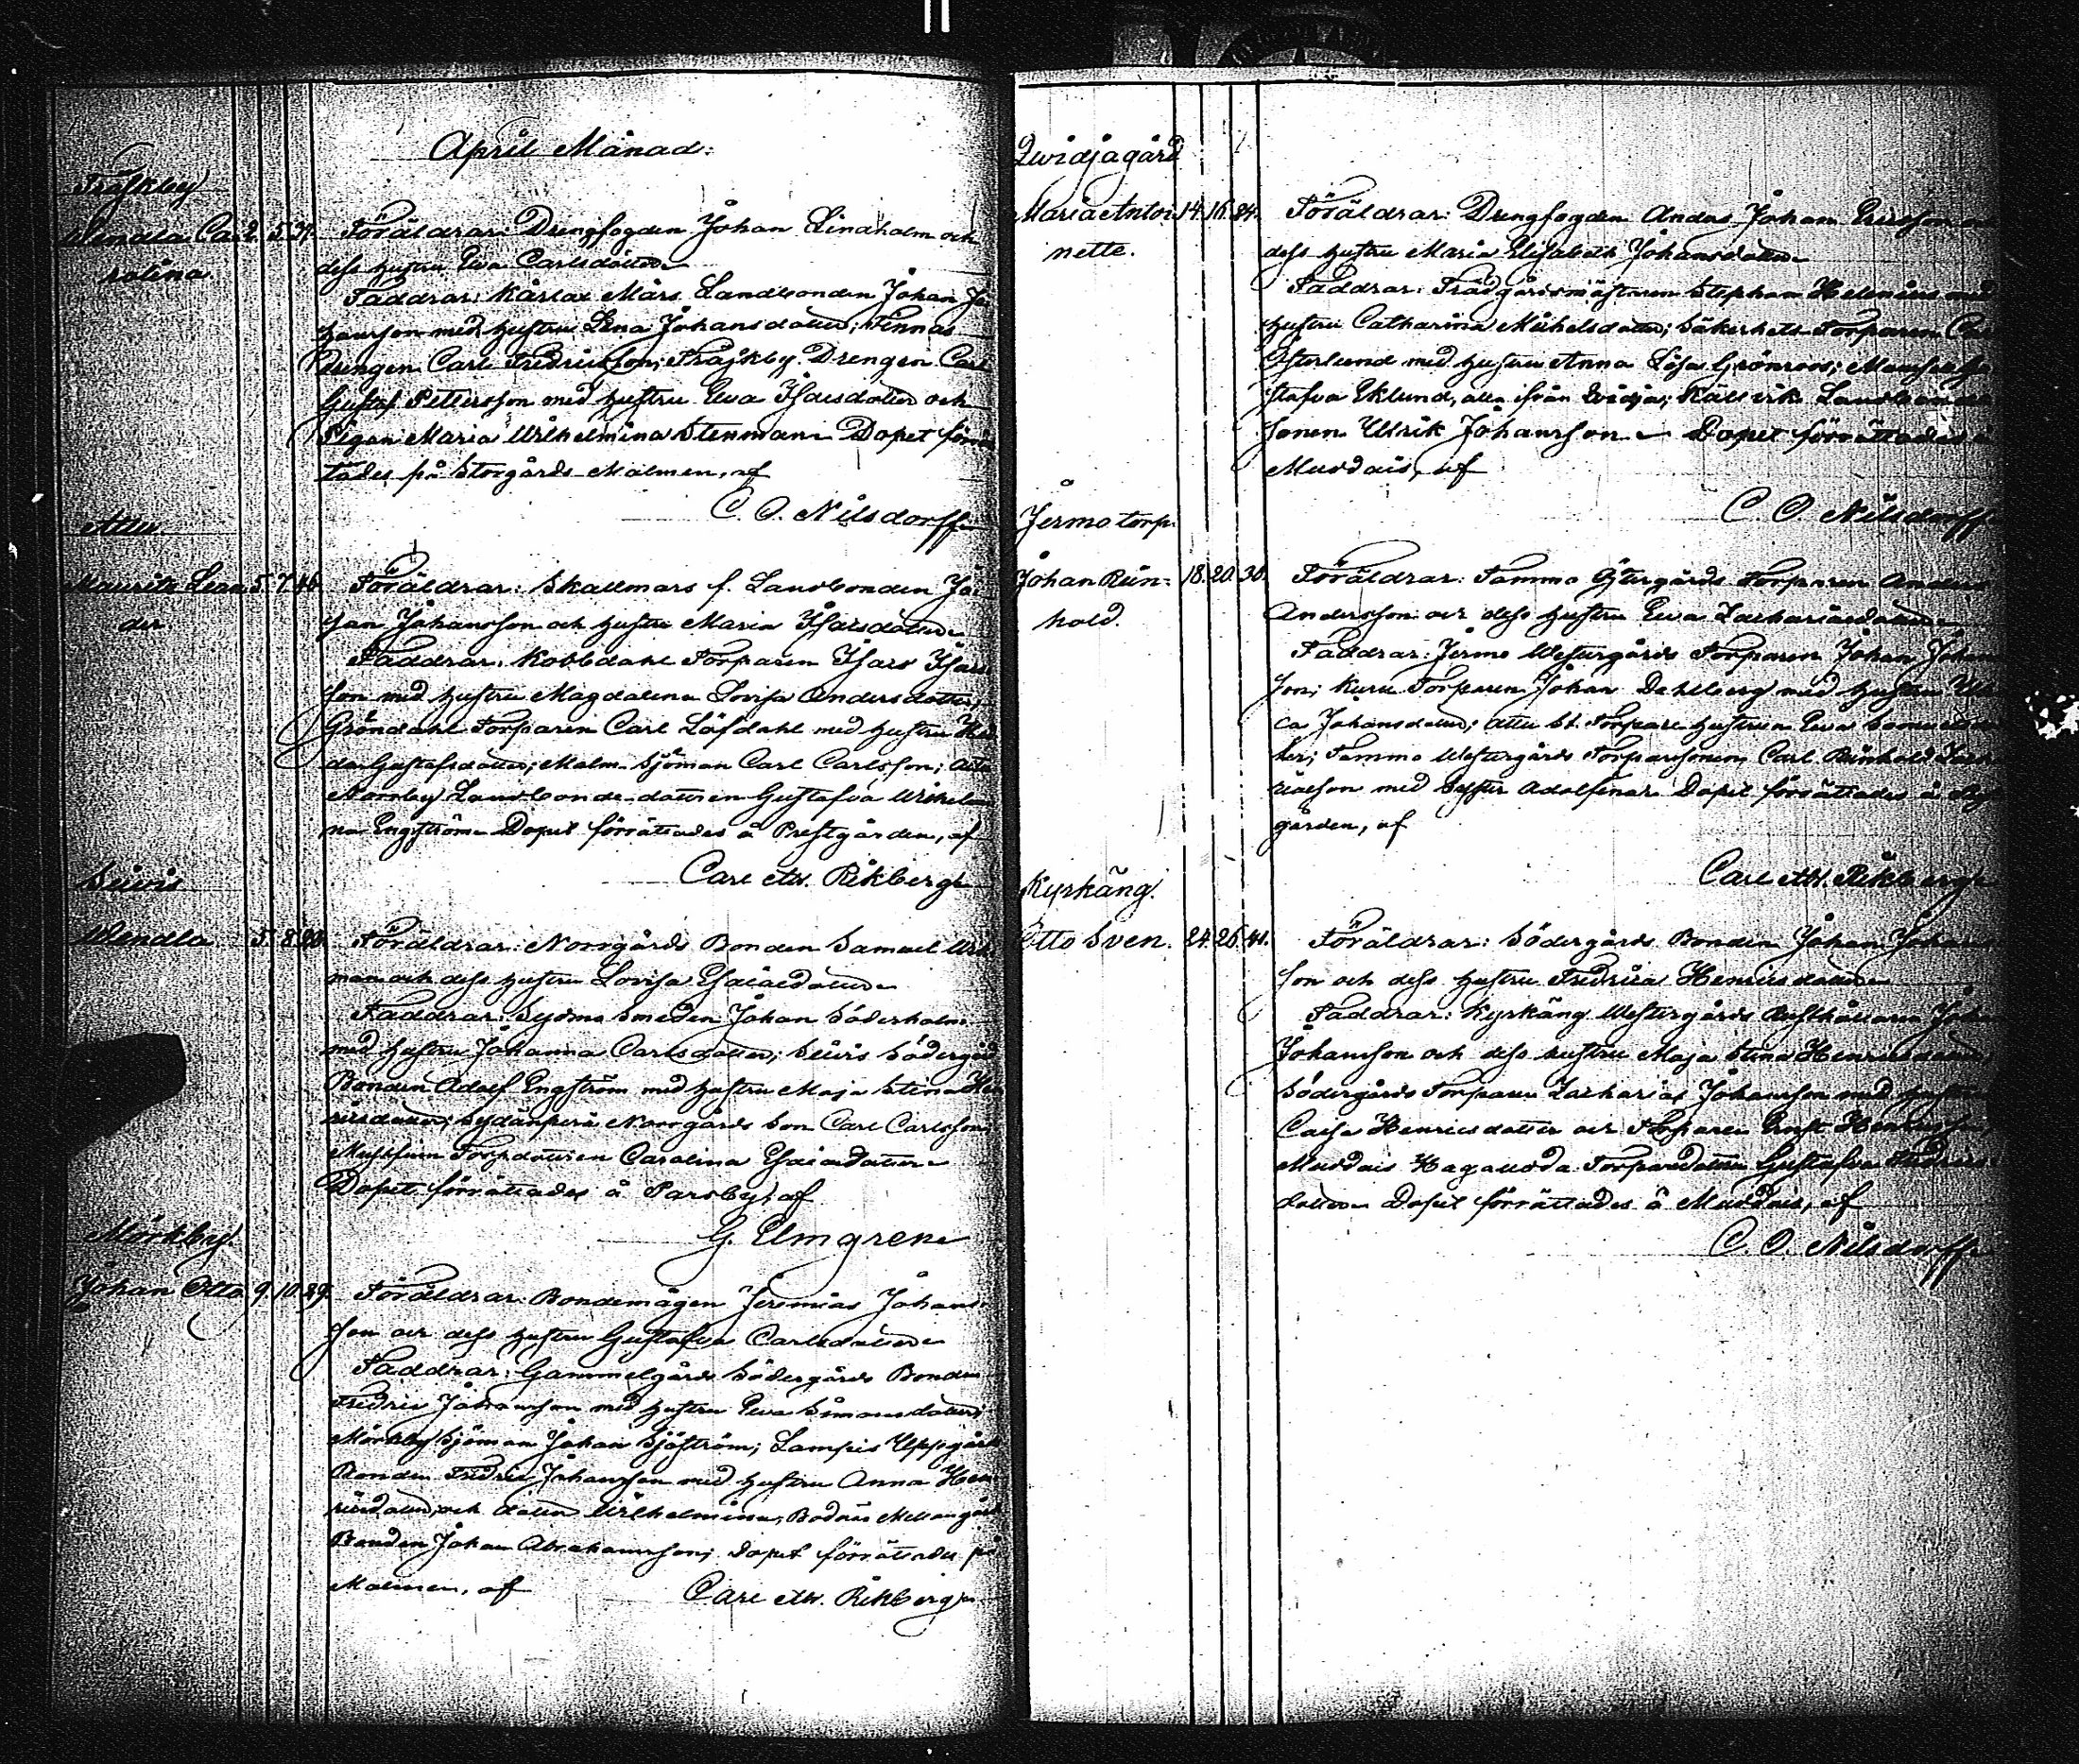 April Månad:
Träskby
Wendla Ca- 2. 5. 31. Föräldrar: Drengfogden Johan Lindholm och
rolina. dess hustru Eva Carlsdotter
Faddrar: Kårlax Mårs Landbonden Johan Jo
hansson med hustru Lena Johansdotter; Finnas
Drengen Carl Fredricsson; Träskby Drengen Carl
Gustaf Pettersson med hustru Eva Isacsdotter och
Pigan Maria Wilhelmina Stenman Dopet förrät
tades på Storgårds Malmen, af
C. O. Nilsdorff
Attu.
Maurits Lean 5. 7. 46. Föräldrar: Skallmars f. Landbonden Jo
der. han Johansson och hustru Maria Isacsdotter
Faddrar: Kobbdahl Torparen Isac Isacs
son med hustru Magdalena Lovisa Andersdotter;
Gröndahl Torparen Carl Löfdahl med hustru
Gustafsdotter; Malm Sjöman Carl Carlsson; Attu
Norrby Landbonde dottren Gustafva Wilhelmi
na Engström Dopet förrättades å Prestgården, af
Carl Ad. Rikberg
Wendla 5. 8. 20. Föräldrar: Norrgårds Bonden Samuel
man och dess hustru Lovisa Esaiædotter
Faddrar: Sydmo Smeden Johan Söderholm
med hustru Johanna Carlsdotter; Södergård
Bonden Adolf Engström med hustru Maja Stina Hen
ricsdotter; Sydänperä Norrgårds Son Carl Carlsson;
Torpdottren Carolina Esaiædotter
Dopet förrättades å Parsby, af
G. Elmgren
Mörkby
Johan Otto 9. 10. 29. Föräldrar: Bondemågen Jeremias Johans
son och dess hustru Gustafva Carlsdotter
Faddrar: Gammelgårds Södergårds Bonden
Fredric Johansson med hustru Eva Simonsdotter;
Mörkby Sjöman Johan Sjöström; Lampis Uppgård
Bonden Fredric Johansson med hustru Anna Hen
ricsdotter, och dotter Wilhelmina; Bodnäs Mellangård
Bonden Johan Abrahamsson; Dopet förrättades på
Malmen, af Carl Ad. Rikberg
Qvidjagård
Maria Antoi- 14. 16. 24. Föräldrar: Drengfogden Andas Johan Ericsson
nette. dess hustru Maria Elisabeth Johansdotter
Faddrar: Trädgårdsmästaren Stephan Helenius med
hustru Catharina Michelsdotter; Säkerhets Torparen
Österlund med hustru Anna Lisa Grönroos;
stafva Eklund, alla ifrån Qvidja; Källvik Landbonde
sonen Ulrik Johansson Dopet förrättades å
Muddais, af
C. O. Nilsdorff
Jermo torp.
Johan Rein- 18. 20. 30. Föräldrar: Tammo Östergårds Torparen Anders
hold. Andersson och dess hustru Eva Zachariædotter
Faddrar: Jermo Westergårds Torparen Johan Johans
son; Kuru Torparen Johan Dahlberg med hustru Ulri
ca Johansdotter; Attu St. Torpare hustrun Eva
ter; Tammo Westergårds Torparesonen Carl Reinhold Zach
riæsson med Syster Adolfina Dopet förrättades å
gården, af
Carl Ad. Rikberg
Kyrkäng.
Otto Sven. 24. 26. 41. Föräldrar: Södergårds Bonden Johan Johans
son och dess hustru Fredrica Henricsdotter
Faddrar: Kyrkäng Westergårds Rusthållaren Johan
Johansson och dess hustru Maja Stina Henricsdotter
Södergårds Torparen Zacharias Johansson med hustru
Caisa Henricsdotter och Torparen Ernst Henricsson
Muddais Hagaudda Torparedotter Gustafva
dotter Dopet förrättades å Muddais, af
C. O. Nilsdorff